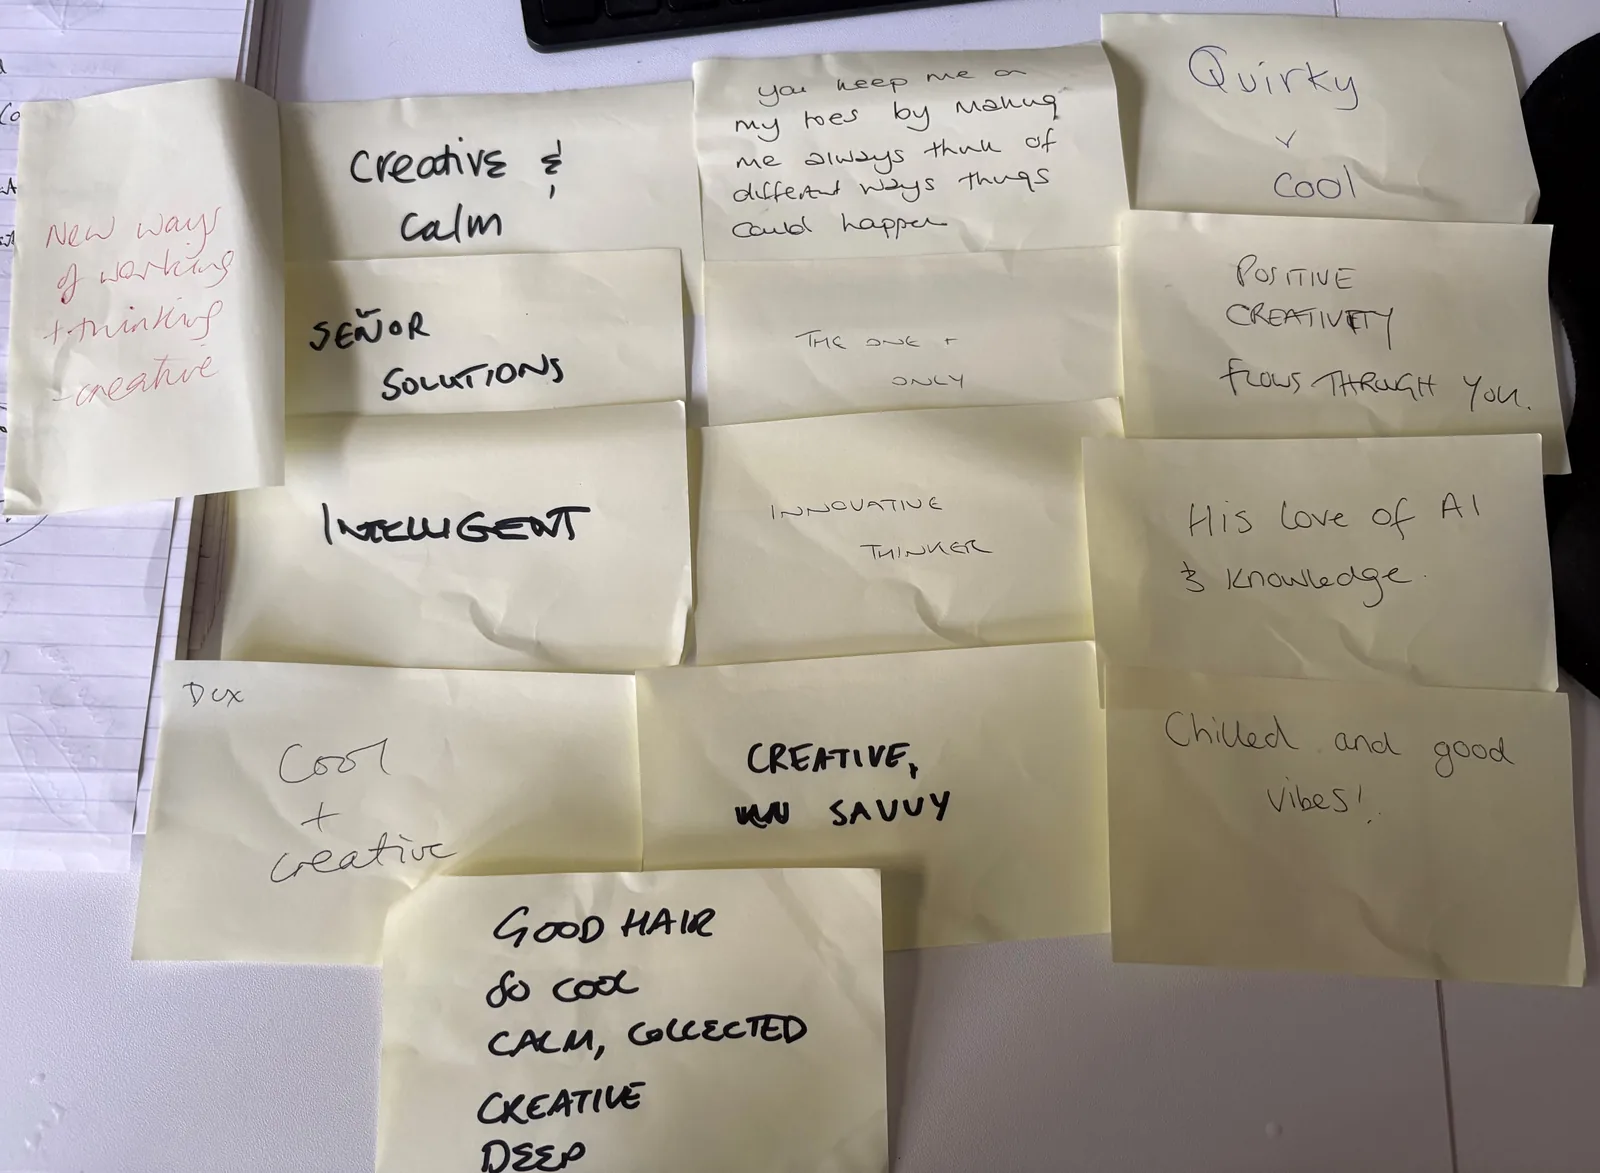 New ways
of working
+ thinking
- creative
Creative &
Calm
you keep me on
my toes by making
me always think of
different ways things
could happen
Quirky
Cool
SEÑOR
SOLUTIONS
THE ONE +
ONLY
POSITIVE
CREATIVITY
FLOWS THROUGH YOU.
INTELLIGENT
INNOVATIVE
THINKER
His love of AI
& Knowledge.
Dex
Cool
+
creative
CREATIVE,
SAVVY
Chilled and good
vibes!
GOOD HAIR
SO COOL
CALM, COLLECTED
CREATIVE
DEEP